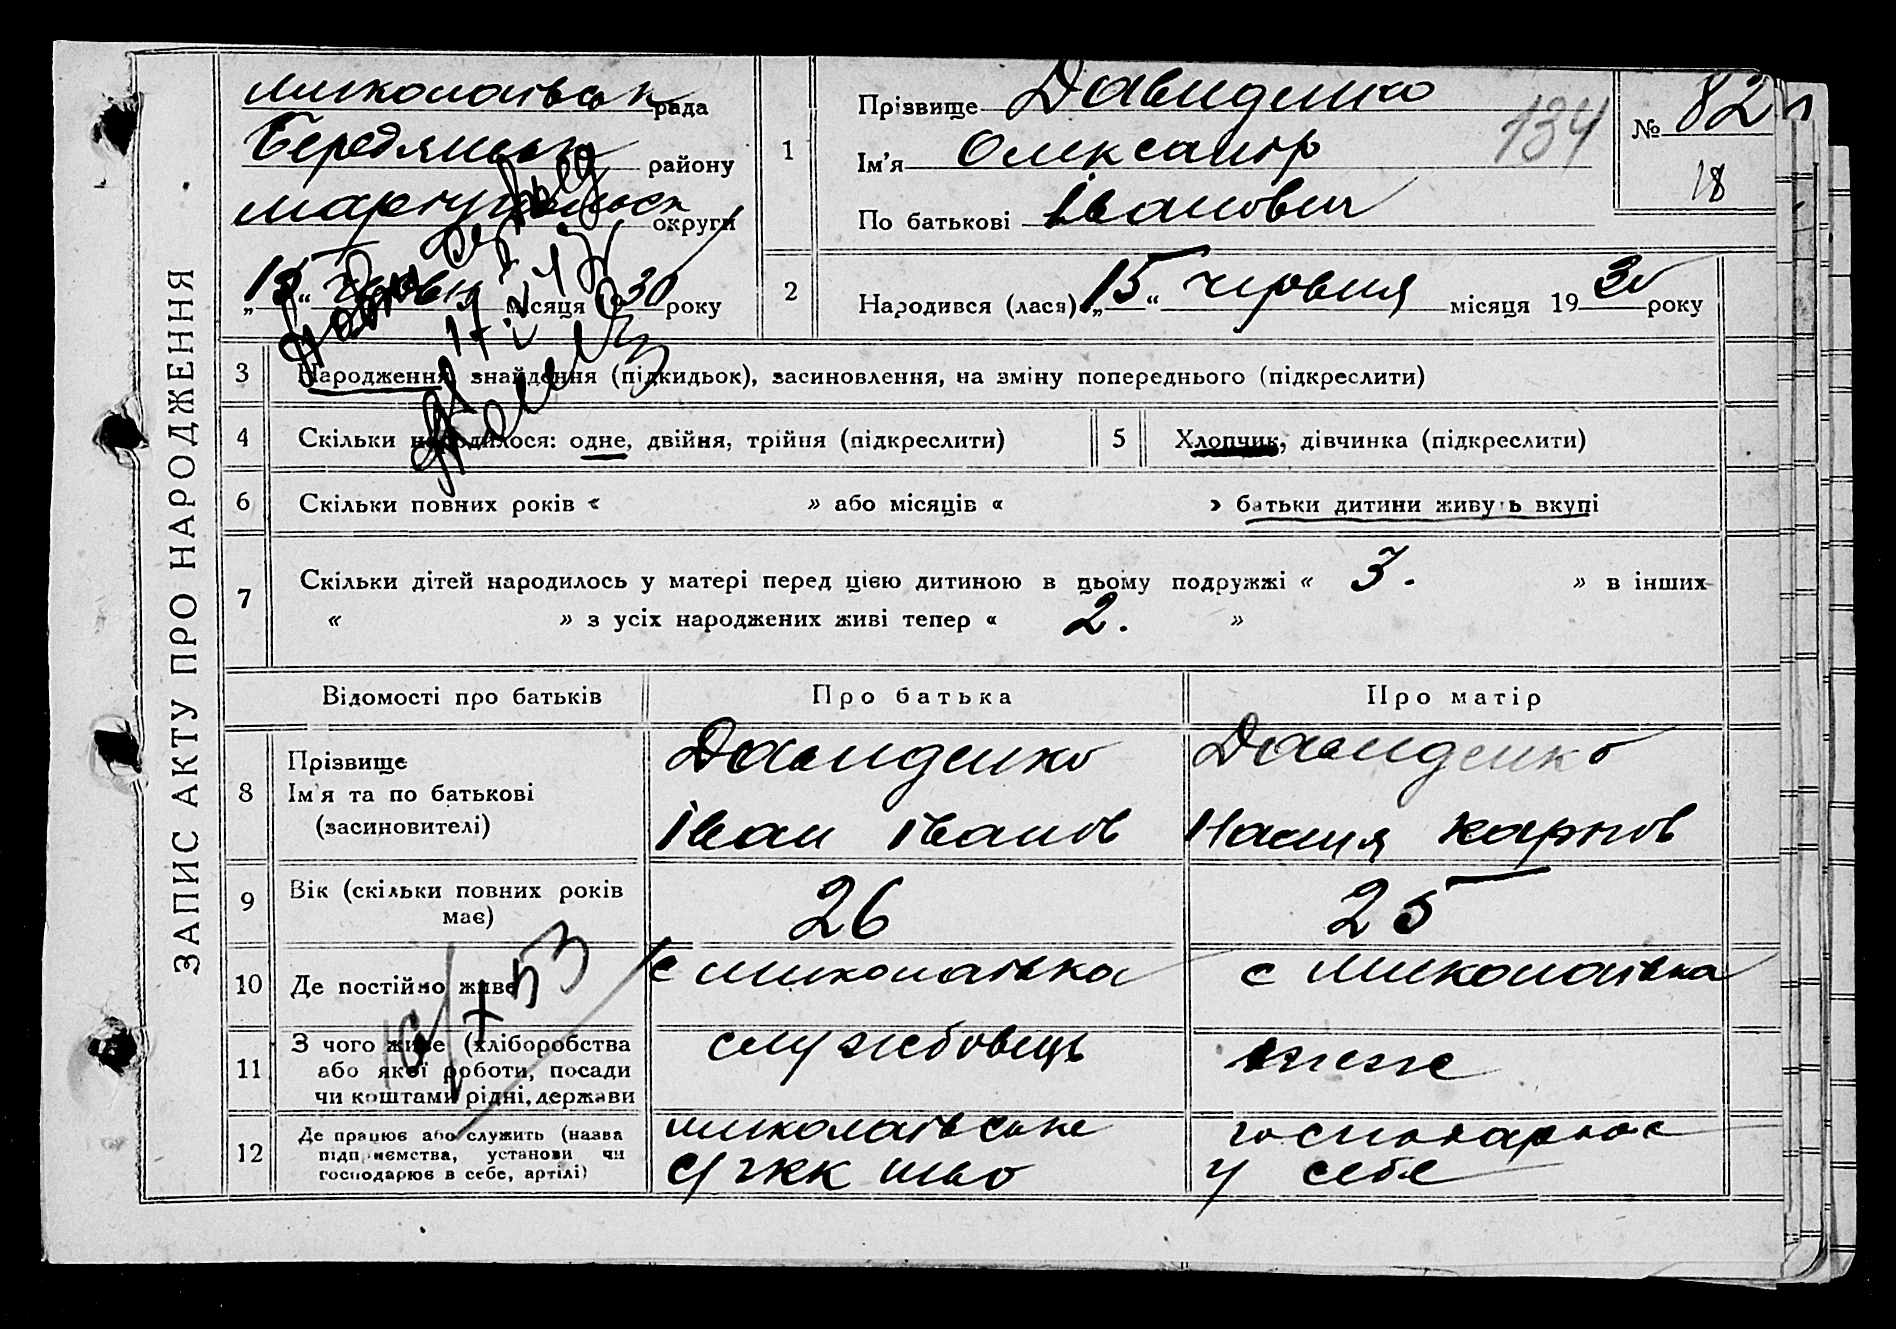 ЗАПИС АКТУ ПРО НАРОДЖЕННЯ
Миколаївськ рада
Бердянськ району
Маріупольськ округи
„15“ червня місяця 30 року
1
Прізвище Давиденко
Ім'я Олександр
По батькові Іванович
134
№ 82
18
2
Народився (лася) „15“ червня місяця 1930 року
17
3 Народження, знайдення (підкидьок), засиновлення, на зміну попереднього (підкреслити)
4 Скільки народилося: одне, двійня, трійня (підкреслити)
5 Хлопчик, дівчинка (підкреслити)
6 Скільки повних років « » або місяців « » батьки дитини живуть вкупі
7 Скільки дітей народилось у матері перед цією дитиною в цьому подружжі « 3. » в інших
« » з усіх народжених живі тепер « 2. »
Відомості про батьків Про батька Про матір
8 Прізвище
Ім'я та по батькові
(засиновителі)
Давиденко
Іван Іванов
Давиденко
Настя Карпов
9 Вік (скільки повних років
має)
26
25
10 Де постійно живе
с Миколаївка
с Миколаївка
53
11 З чого живе (хліборобства
або якої роботи, посади
чи коштами рідні, держави
службовець
12 Де працює або служить (назва
підприємства, установи чи
господарює в себе, артілі)
Миколаївське
у себе